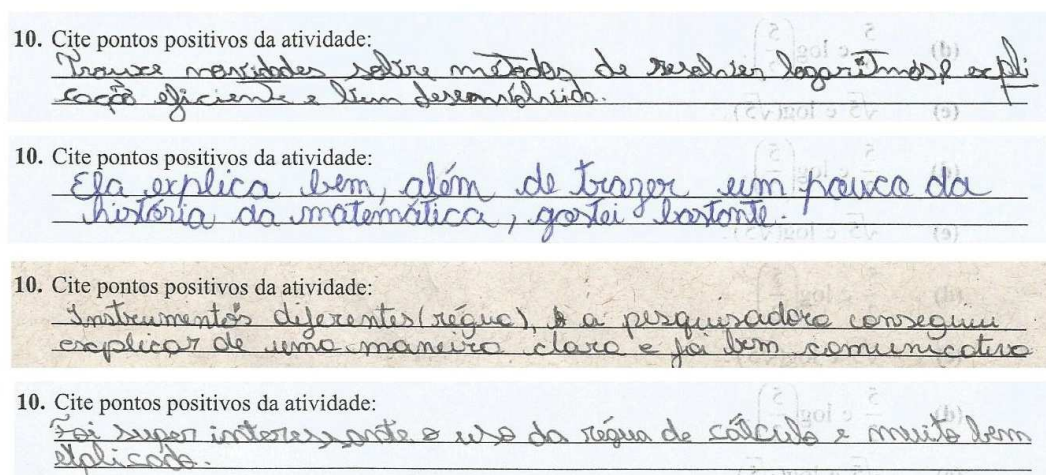 10. Cite pontos positivos da atividade:
Trouxe novidades sobre métodos de resolver logaritmos, expli
cação eficiente e bem desenvolvida.
10. Cite pontos positivos da atividade:
Ela explica bem, além de trazer um pouco da
história da matemática, gostei bastante.
10. Cite pontos positivos da atividade:
Instrumentos diferentes (régua), a pesquisadora conseguiu
explicar de uma maneira clara e foi bem comunicativa
10. Cite pontos positivos da atividade:
Foi super interessante o uso da régua de cálculo e muito bem
explicado.